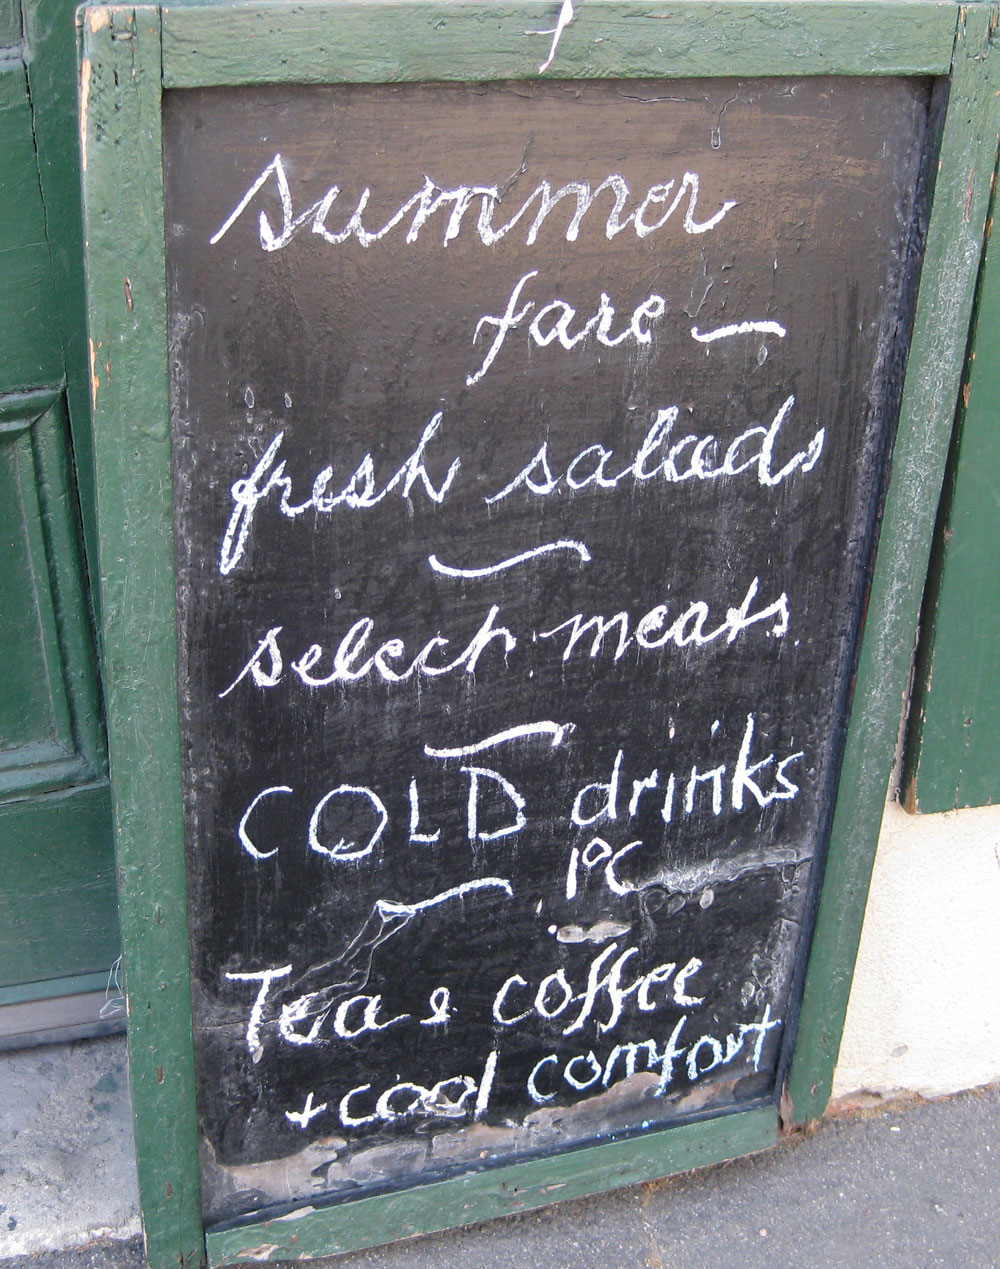 summer
fare —
fresh salads
select meats
COLD drinks
1°C
Tea & coffee
+ cool comfort